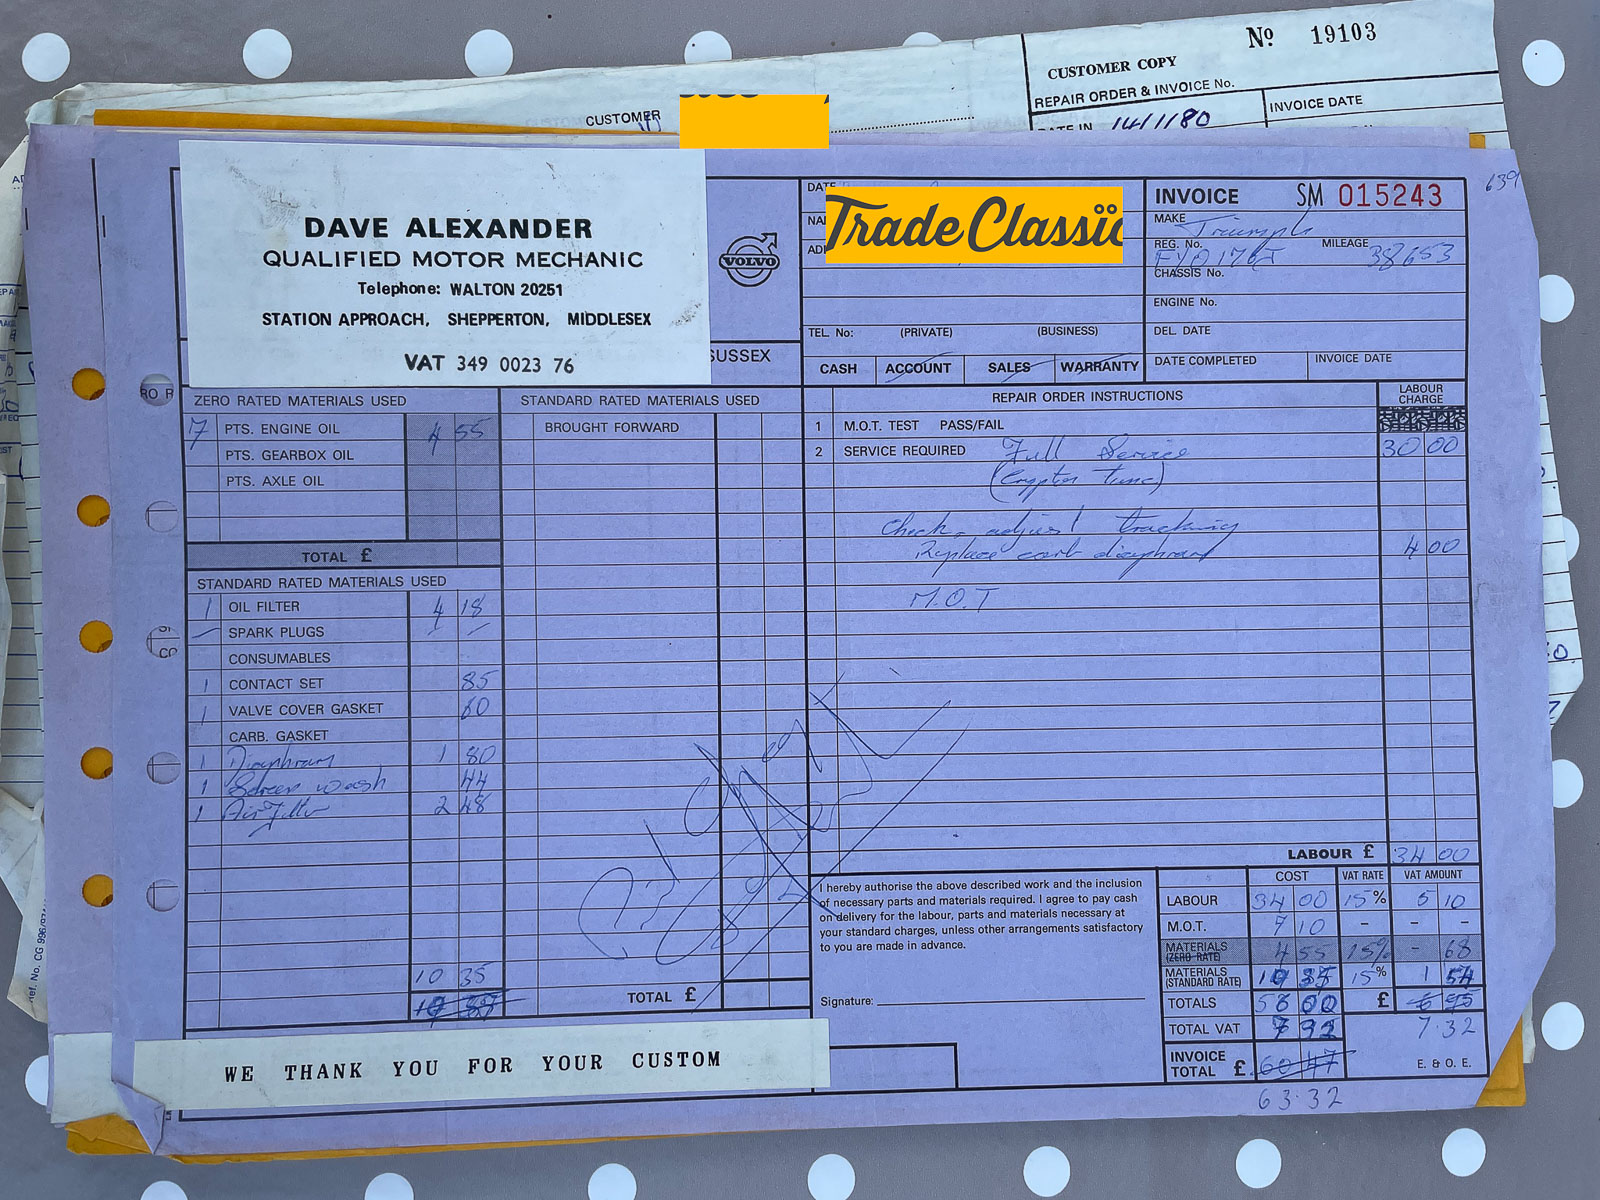 Nº 19103
CUSTOMER COPY
REPAIR ORDER & INVOICE No.
INVOICE DATE
CUSTOMER
DATE IN 14/1/80
639
DAVE ALEXANDER
QUALIFIED MOTOR MECHANIC
Telephone: WALTON 20251
STATION APPROACH, SHEPPERTON, MIDDLESEX
VAT 349 0023 76
VOLVO
SUSSEX
DATE
Trade Classic
TEL. No: (PRIVATE) (BUSINESS)
CASH ACCOUNT SALES WARRANTY
INVOICE SM 015243
MAKE Triumph
REG. No. MILEAGE 38653
CHASSIS No.
ENGINE No.
DEL. DATE
DATE COMPLETED INVOICE DATE
ZERO RATED MATERIALS USED
7 PTS. ENGINE OIL 4 55
PTS. GEARBOX OIL
PTS. AXLE OIL
TOTAL £
STANDARD RATED MATERIALS USED
1 OIL FILTER 4 18
SPARK PLUGS
CONSUMABLES
1 CONTACT SET 85
1 VALVE COVER GASKET 60
CARB. GASKET
1 Diaphram 1 80
1 Screen wash 44
1 Air Filter 2 48
10 35
STANDARD RATED MATERIALS USED
BROUGHT FORWARD
TOTAL £
REPAIR ORDER INSTRUCTIONS LABOUR CHARGE
1 M.O.T. TEST PASS/FAIL
2 SERVICE REQUIRED Full Service 30 00
(Crypton tune)
Check, adjust tracking
Replace carb diaphram 4 00
M.O.T
LABOUR £ 34 00
I hereby authorise the above described work and the inclusion
of necessary parts and materials required. I agree to pay cash
on delivery for the labour, parts and materials necessary at
your standard charges, unless other arrangements satisfactory
to you are made in advance.
Signature:
COST VAT RATE VAT AMOUNT
LABOUR 34 00 15% 5 10
M.O.T. 7 10 - - -
MATERIALS (ZERO RATE) 4 55 15% - 68
MATERIALS (STANDARD RATE) 10 35 15% 1 54
TOTALS 56 00 £ 6 95
TOTAL VAT 7 32 7.32
INVOICE TOTAL £ 60 47 E. & O. E.
63.32
WE THANK YOU FOR YOUR CUSTOM